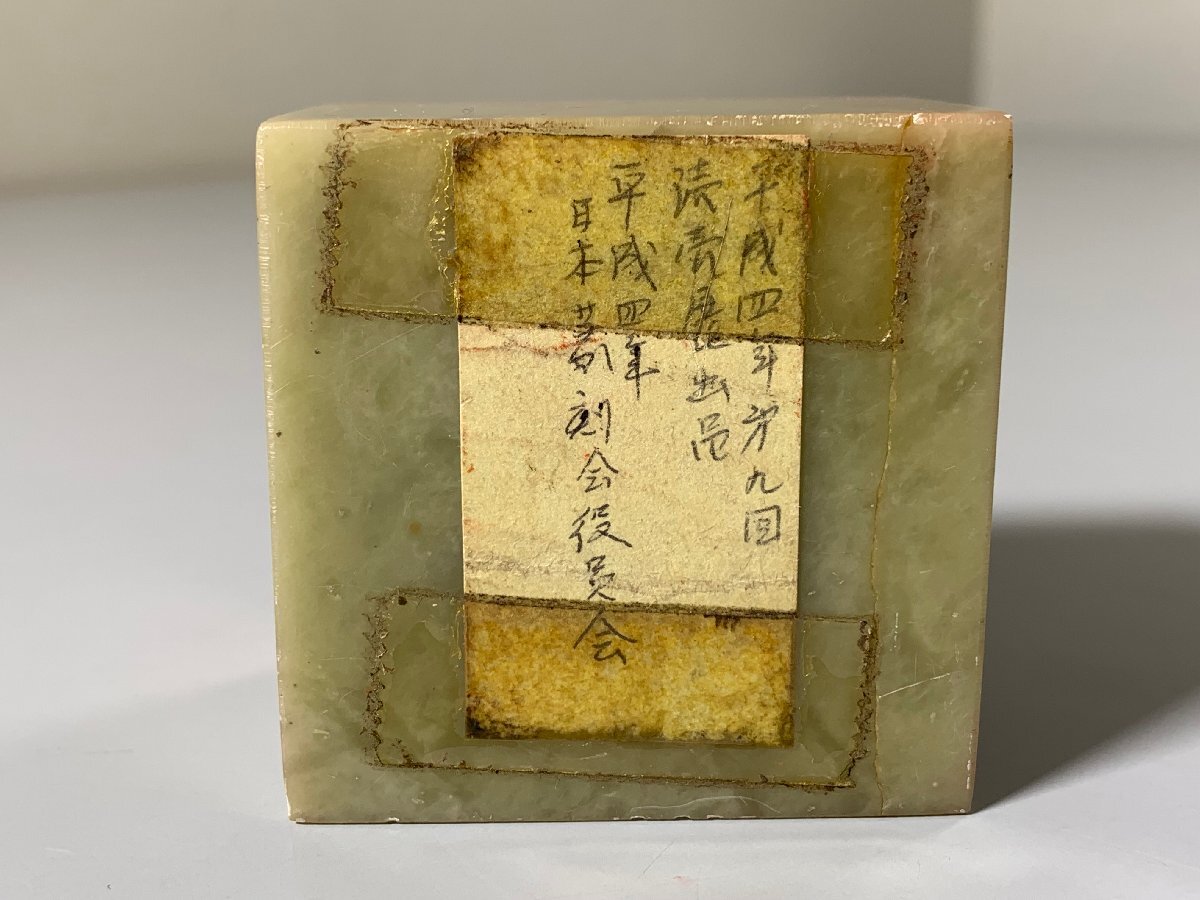 平成四年第九回
読売展出品
平成四年
日本篆刻会役員会